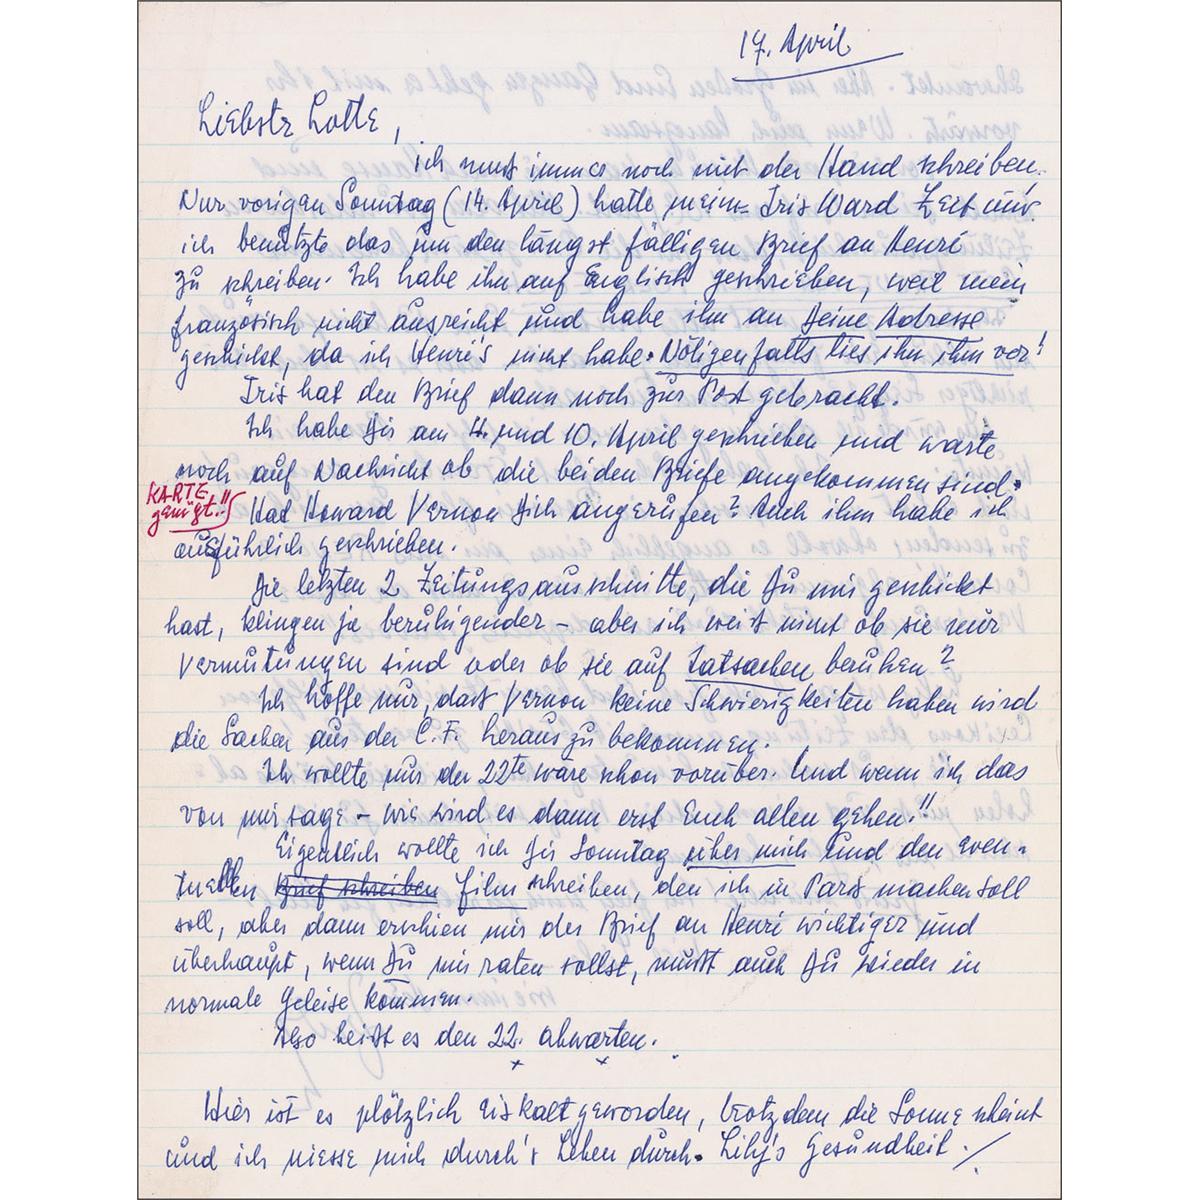 17. April
Liebste Lotte,
ich muß immer noch mit der Hand schreiben.
Nur vorigen Sonntag (14. April) hatte meine Iris Ward Zeit und
ich benützte das um den längst fälligen Brief an Henri
zu schreiben. Ich habe ihn auf Englisch geschrieben, weil mein
französisch nicht ausreicht und habe ihn an Deine Adresse
geschickt, da ich Henri's nicht habe. Nötigenfalls lies ihn ihm vor!
Iris hat den Brief dann noch zur Post gebracht.
Ich habe Dir am 4. und 10. April geschrieben und warte
noch auf Nachricht ob die beiden Briefe angekommen sind.
KARTE
genügt!!
Hat Howard Vernon Dich angerufen? Auch ihm habe ich
ausführlich geschrieben.
Die letzten 2 Zeitungsausschnitte, die Du mir geschickt
hast, klingen ja beruhigender - aber ich weiß nicht ob sie nur
Vermutungen sind oder ob sie auf Tatsachen beruhen?
Ich hoffe nur, daß Vernon keine Schwierigkeiten haben wird
die Sachen aus der C.F. herauszubekommen.
Ich wollte nur der 22te wäre schon vorüber. Und wenn ich das
von mir sage - wie wird es dann erst Euch allen gehen!!
Eigentlich wollte ich Dir Sonntag über mich und den even-
tuellen Brief schreiben Film schreiben, den ich in Paris machen soll
soll, aber dann erschien mir der Brief an Henri wichtiger und
überhaupt, wenn Du mir raten sollst, mußt auch Du wieder in
normale Geleise kommen.
Also heißt es den 22. abwarten.
x x
Hier ist es plötzlich Eiskalt geworden, trotzdem die Sonne scheint
und ich niesse mich durch's Leben durch. Lily's Gesundheit ./